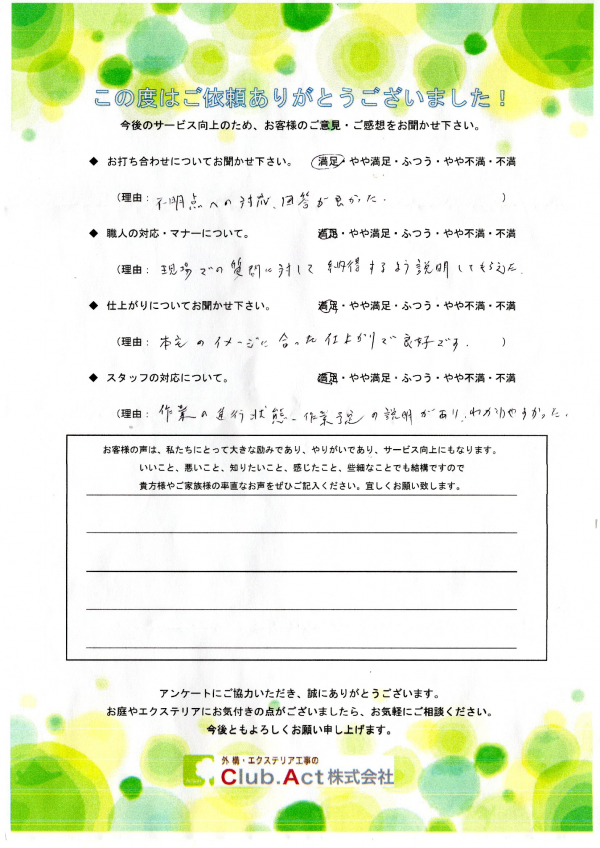 この度はご依頼ありがとうございました！
今後のサービス向上のため、お客様のご意見・ご感想をお聞かせ下さい。
◆ お打ち合わせについてお聞かせ下さい。 満足・やや満足・ふつう・やや不満・不満
（理由：不明点への対応、回答が良かった。）
◆ 職人の対応・マナーについて。 満足・やや満足・ふつう・やや不満・不満
（理由：現場での質問に対して納得するよう説明してもらえた。
◆ 仕上がりについてお聞かせ下さい。 満足・やや満足・ふつう・やや不満・不満
（理由：本宅のイメージに合った仕上がりで良好です。）
◆ スタッフの対応について。 満足・やや満足・ふつう・やや不満・不満
（理由：作業の進行状態、作業予定の説明があり、わかりやすかった。
お客様の声は、私たちにとって大きな励みであり、やりがいであり、サービス向上にもなります。
いいこと、悪いこと、知りたいこと、感じたこと、些細なことでも結構ですので
貴方様やご家族様の率直なお声をぜひご記入ください。宜しくお願い致します。
アンケートにご協力いただき、誠にありがとうございます。
お庭やエクステリアにお気付きの点がございましたら、お気軽にご相談ください。
今後ともよろしくお願い申し上げます。
外構・エクステリア工事の
Club.Act株式会社